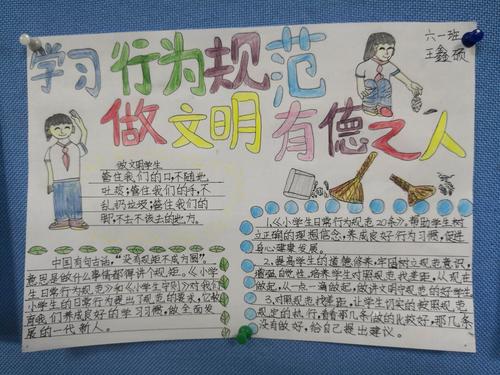 学习行为规范
六一班
王鑫硕
做文明有德之人
做文明学生
管住我们的口,不随地
吐痰;管住我们的手,不
乱扔垃圾;管住我们的
脚,不去不该去的地方。
中国有句古话,“没有规矩不成方圆”,
意思是做什么事情都得讲个规矩。《小学
生日常行为规范》和《小学生守则》对我们
小学生的日常行为提出了规范的要求,
我们养成良好的学习习惯,做全面发
展的一代新人。
1.《小学生日常行为规范20条》,帮助学生树
立正确的理想信念,养成良好行为习惯,促进
身心健康发展。
2.提高学生的道德修养,牢固树立规范意识,
增强自觉性,培养学生对照规范找差距,从现在
做起,从一点一滴做起,做讲文明守规范的好学生
3.对照规范找差距,让学生切实的按照规范
规定的执行,看看那几条做的比较好,那几条
没有做好,给自己提出建议。